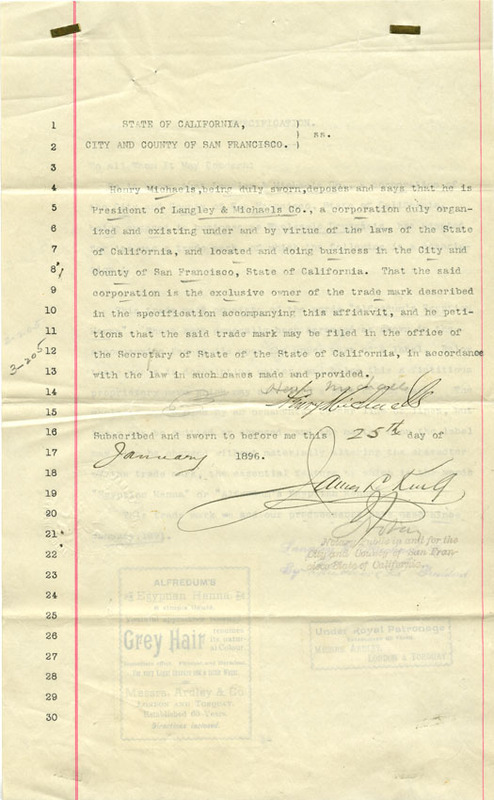 1 STATE OF CALIFORNIA, )
) ss.
2 CITY AND COUNTY OF SAN FRANCISCO. )
3
4 Henry Michaels, being duly sworn, deposes and says that he is
5 President of Langley & Michaels Co., a corporation duly organ-
6 ized and existing under and by virtue of the laws of the State
7 of California, and located and doing business in the City and
8 County of San Francisco, State of California. That the said
9 corporation is the exclusive owner of the trade mark described
10 in the specification accompanying this affidavit, and he peti-
11 tions that the said trade mark may be filed in the office of
12 the Secretary of State of the State of California, in accordance
3-205
13 with the law in such cases made and provided.
14 Henry Michaels
15
16 Subscribed and sworn to before me this 25th day of
17 January 1896.
18 James L. King
19
20
21 Notary Public in and for the
22 City and County of San Fran-
cisco State of California.
23
24 ALFREDUM'S
25 Egyptian Henna.
26 Under Royal Patronage
Grey Hair
27 LONDON & TORQUAY
28 Messrs. Ardley & Co
29 LONDON AND TORQUAY.
Established 60 Years.
30